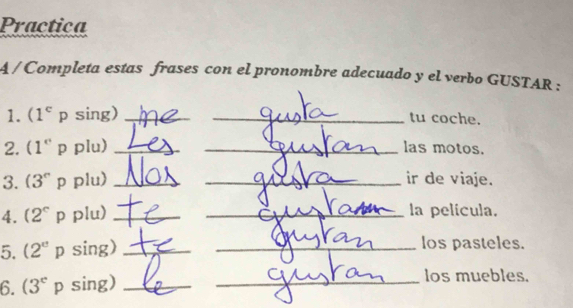 Practica
A/Completa estas frases con el pronombre adecuado y el verbo GUSTAR:
1. (1ᵉ p sing) me gusta tu coche.
2. (1ᵉʳ p plu) Les gustan las motos.
3. (3ᵉ p plu) Nos gusta ir de viaje.
4. (2ᵉ p plu) te gusta la película.
5. (2ᵉ p sing) te gustan los pasteles.
6. (3ᵉ p sing) le gustan los muebles.